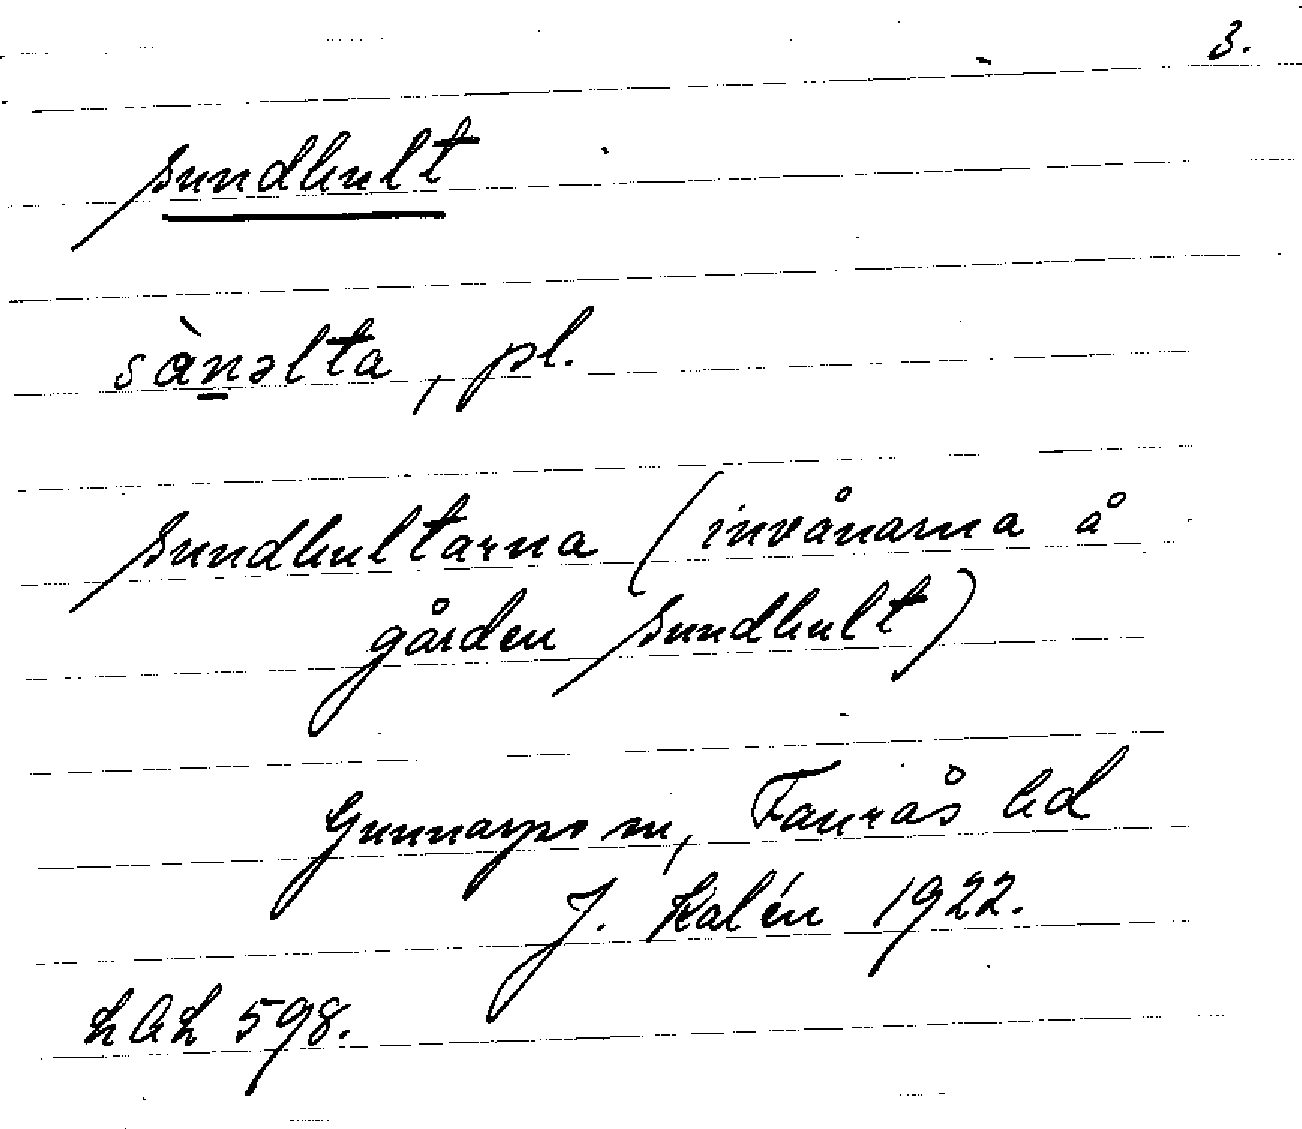 3.
Sundhult
sànəlta, pl.
Sundhultarna (invånarna å
gården Sundhult)
Gunnarps sn, Faurås hd
J. Kalén 1922.
LAL 598.